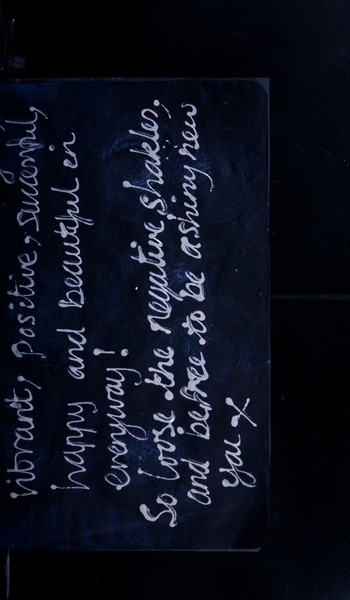 vibrant, positive, successful,
happy and beautiful in
everyway!
So loose the negative shakles,
and be free to be a shiny new
you x